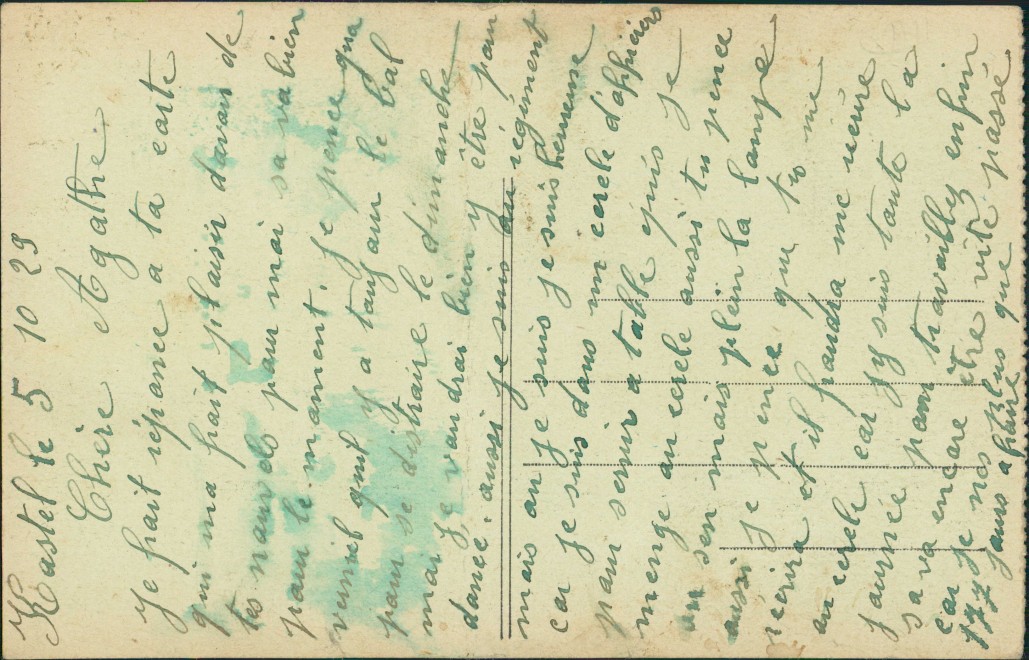 Kastel le 5 10 29
Chère Agathe
Je fait réponce a ta carte
qui ma fait plaisir davoir de
tes nouvels pour moi sa va bien
pour le moment, je pence qua
verniel quil y a toujour le bal
pour se distraire le dimanche
moi je voudrai bien y être pour
dancé. aussi je suis au régiment
mais ou je suis je suis heureuse
car je suis dans un cercle d'officiers
pour servir a table puis je
menge au cercle aussi tu pence
on sen mais plein la lampe
aussi je pence que tu me
recrira et il faudra me récrire
au cercle car j'y suis toute la
journée pour travailley enfin
sa va encore être vite passé
car je nos plus que
177 jours a faire